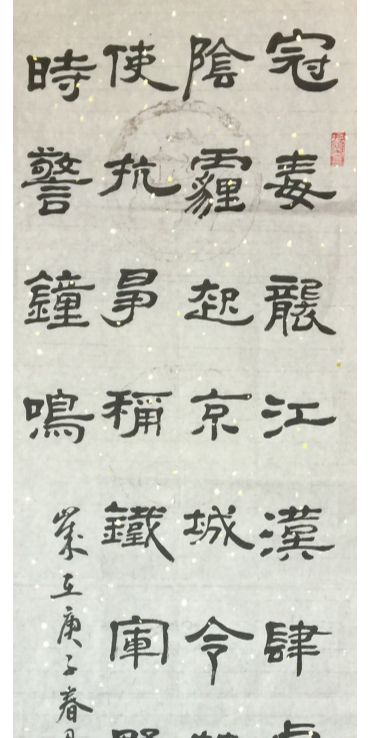 冠毒襲江漢肆
陰霾起京城令
使抗爭稱鐵軍
時警鐘鳴
歲在庚子春